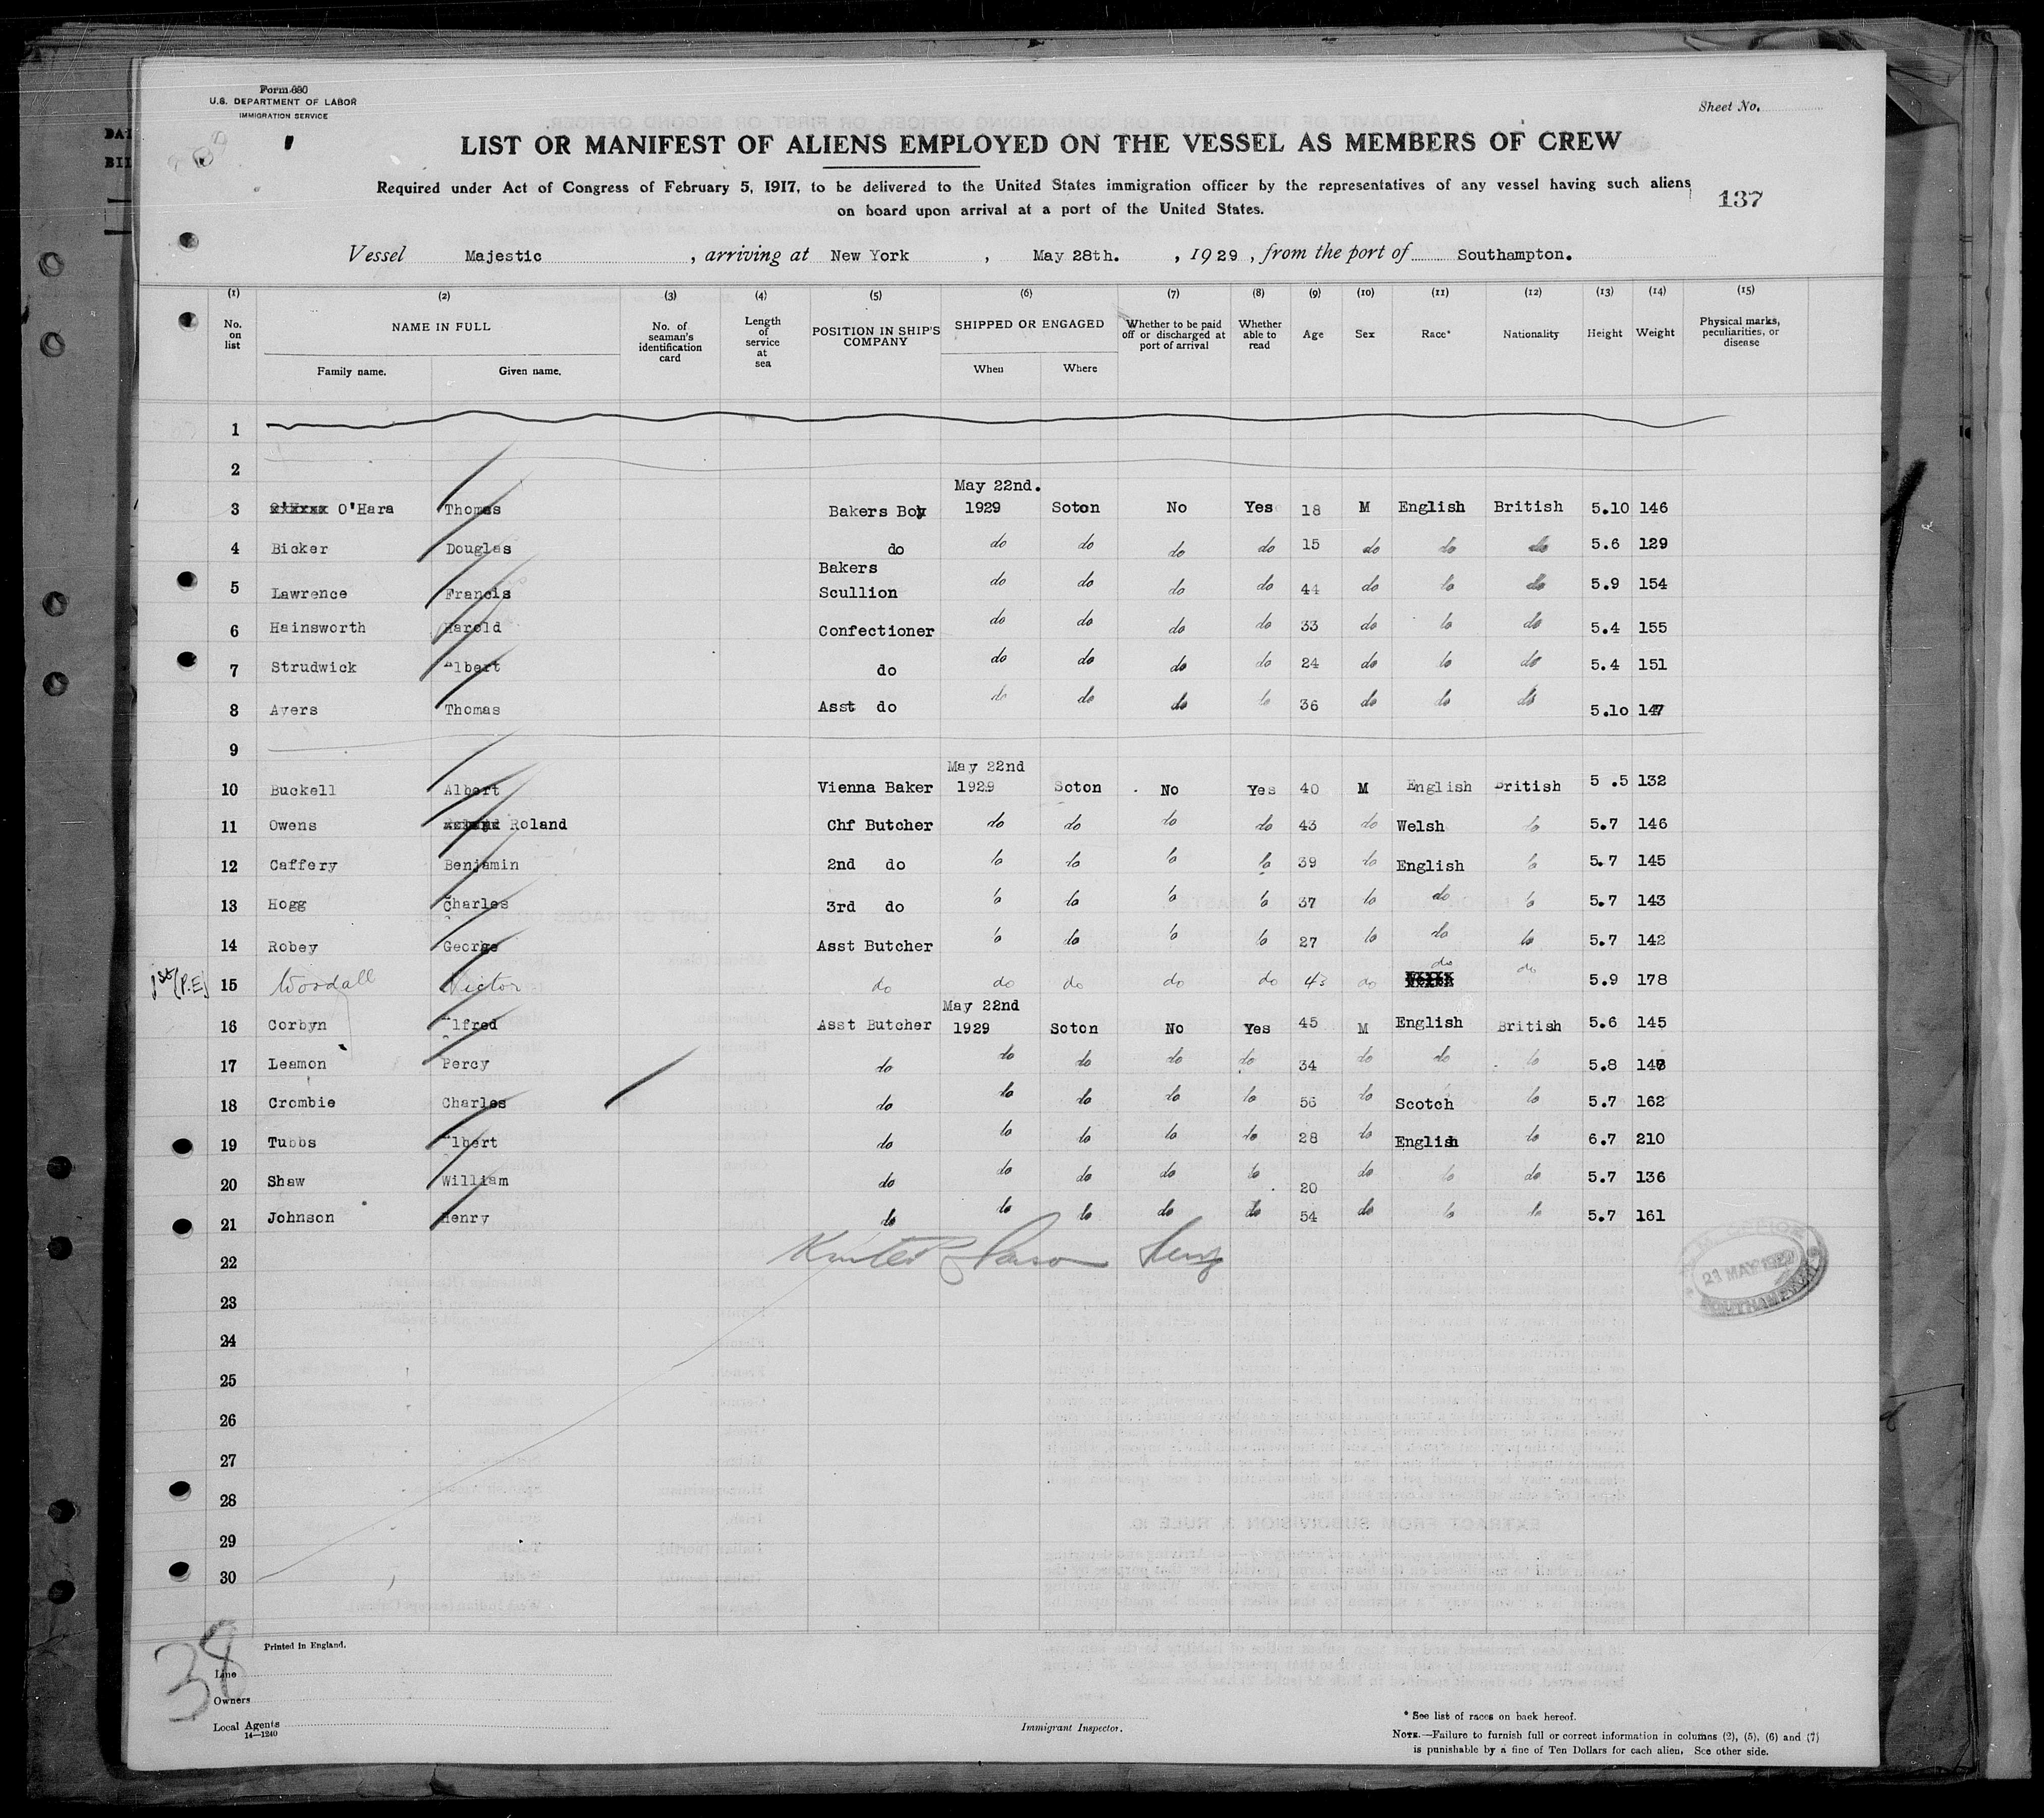 Form 680
U.S. DEPARTMENT OF LABOR
IMMIGRATION SERVICE
Sheet No.
LIST OR MANIFEST OF ALIENS EMPLOYED ON THE VESSEL AS MEMBERS OF CREW
Required under Act of Congress of February 5, 1917, to be delivered to the United States immigration officer by the representatives of any vessel having such aliens
on board upon arrival at a port of the United States.
137
Vessel Majestic, arriving at New York, May 28th., 1929, from the port of Southampton.
(1) (2) (3) (4) (5) (6) (7) (8) (9) (10) (11) (12) (13) (14) (15)
No. on list NAME IN FULL No. of seaman's identification card Length of service at sea POSITION IN SHIP'S COMPANY SHIPPED OR ENGAGED Whether to be paid off or discharged at port of arrival Whether able to read Age Sex Race* Nationality Height Weight Physical marks, peculiarities, or disease
Family name. Given name. When Where
1
2
May 22nd.
3 O'Hara Thomas Bakers Boy 1929 Soton No Yes 18 M English British 5.10 146
4 Bicker Douglas do do do do do 15 do do do 5.6 129
Bakers
5 Lawrence Francis Scullion do do do do 44 do do do 5.9 154
6 Hainsworth Harold Confectioner do do do do 33 do do do 5.4 155
7 Strudwick Albert do do do do do 24 do do do 5.4 151
8 Ayers Thomas Asst do do do do do 36 do do do 5.10 147
9
May 22nd
10 Buckell Albert Vienna Baker 1929 Soton No Yes 40 M English British 5.5 132
11 Owens Roland Chf Butcher do do do do 43 do Welsh do 5.7 146
12 Caffery Benjamin 2nd do do do do do 39 do English do 5.7 145
13 Hogg Charles 3rd do do do do do 37 do do do 5.7 143
14 Robey George Asst Butcher do do do do 27 do do do 5.7 142
1st (P.E.) 15 Woodall Victor do do do do do 43 do do do 5.9 178
May 22nd
16 Corbyn Alfred Asst Butcher 1929 Soton No Yes 45 M English British 5.6 145
17 Leamon Percy do do do do do 34 do do do 5.8 148
18 Crombie Charles do do do do do 56 do Scotch do 5.7 162
19 Tubbs Albert do do do do do 28 do English do 6.7 210
20 Shaw William do do do do do 20 do do do 5.7 136
21 Johnson Henry do do do do do 54 do do do 5.7 161
22
21 MAY 1929
SOUTHAMPTON
23
24
25
26
27
28
29
30
38
Printed in England.
Line
Owners
Local Agents
14—1240
Immigrant Inspector.
* See list of races on back hereof.
NOTE.—Failure to furnish full or correct information in columns (2), (5), (6) and (7)
is punishable by a fine of Ten Dollars for each alien. See other side.